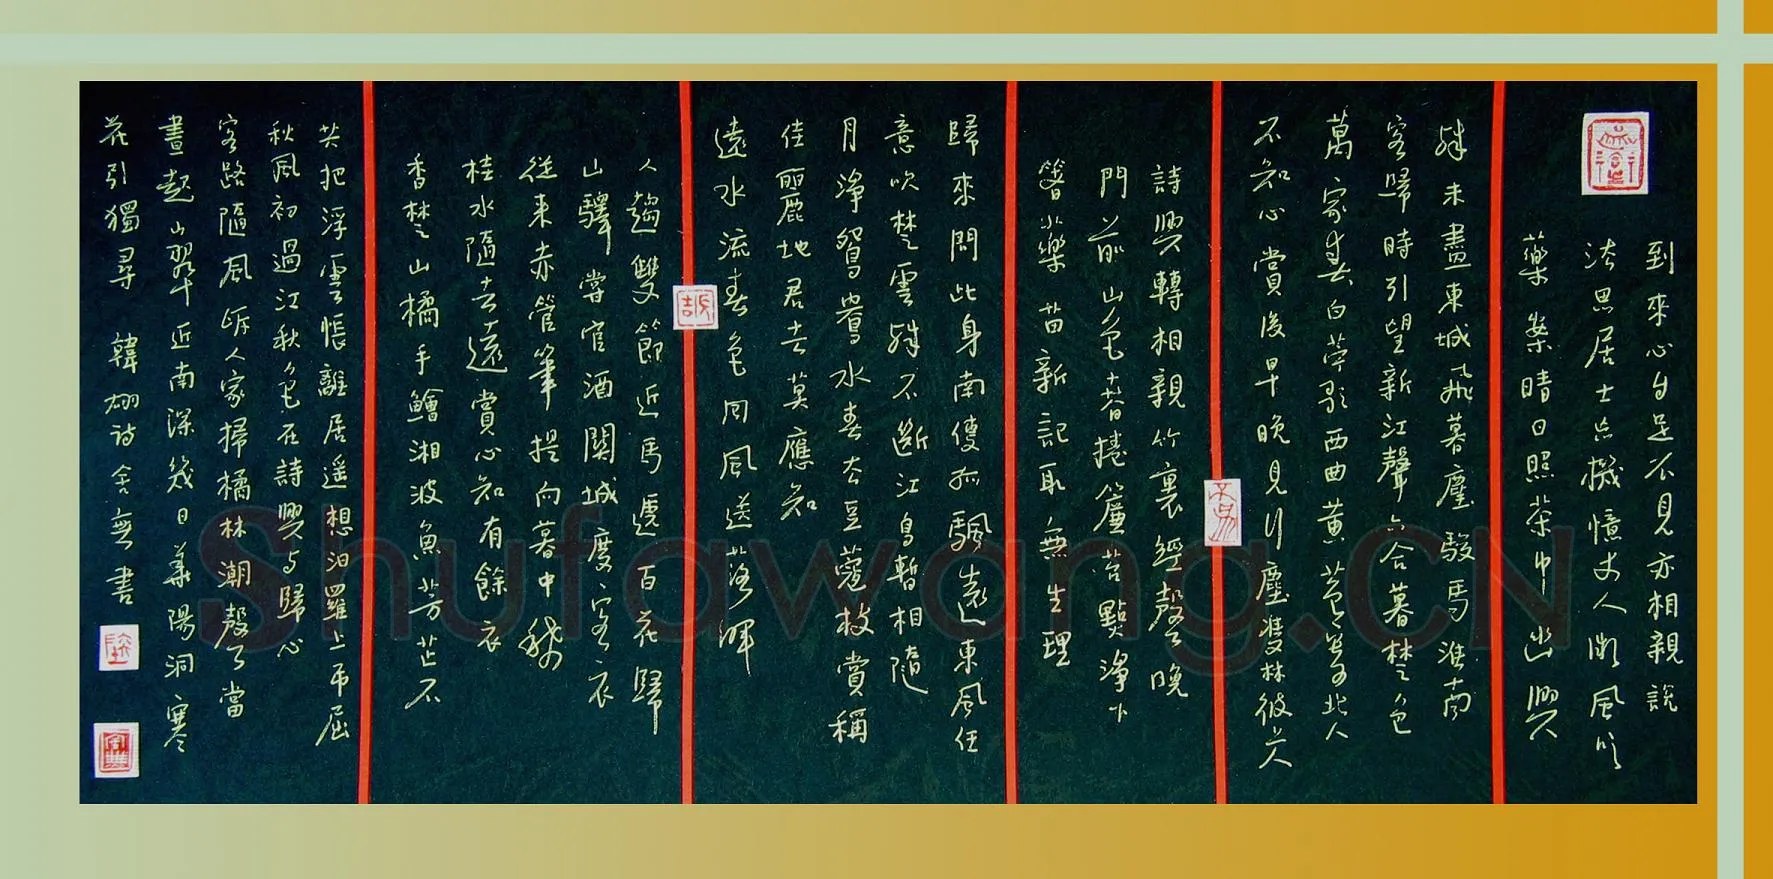 到來心自足不見亦相親說
法思居士忘機憶丈人微風吹
藥案晴日照茶巾幽興
殊未盡東城飛暮塵駿馬淮南
客歸時引望新江聲六合暮楚色
萬家春白苧歌西曲黃苞寄北人
不知心賞後早晚見行塵雙林彼上人
詩興轉相親竹裏經聲晚
門前山色春捲簾苔點淨下
箸藥苗新記取無生理
歸來問此身南僊孤飄遠東風任
意吹楚雲殊不斷江鳥暫相隨
月淨鴛鴦水春生豆蔻枝賞稱
佳麗地君去莫應知
遠水流春色回風送落暉
人趨雙節近馬遞百花歸
山驛嘗官酒關城度客衣
從來赤管筆提向暮中
桂水隨去遠賞心知有餘衣
香楚山橘手鱠湘波魚芳芷不
共把浮雲悵離居遙想汨羅上弔屈
秋風初過江秋色在詩興與歸心
客路隨風 人家掃橘林潮聲當
晝起山翠近南深幾日華陽洞寒
花引獨尋 韓翃詩 舍無書
Shufawang.CN